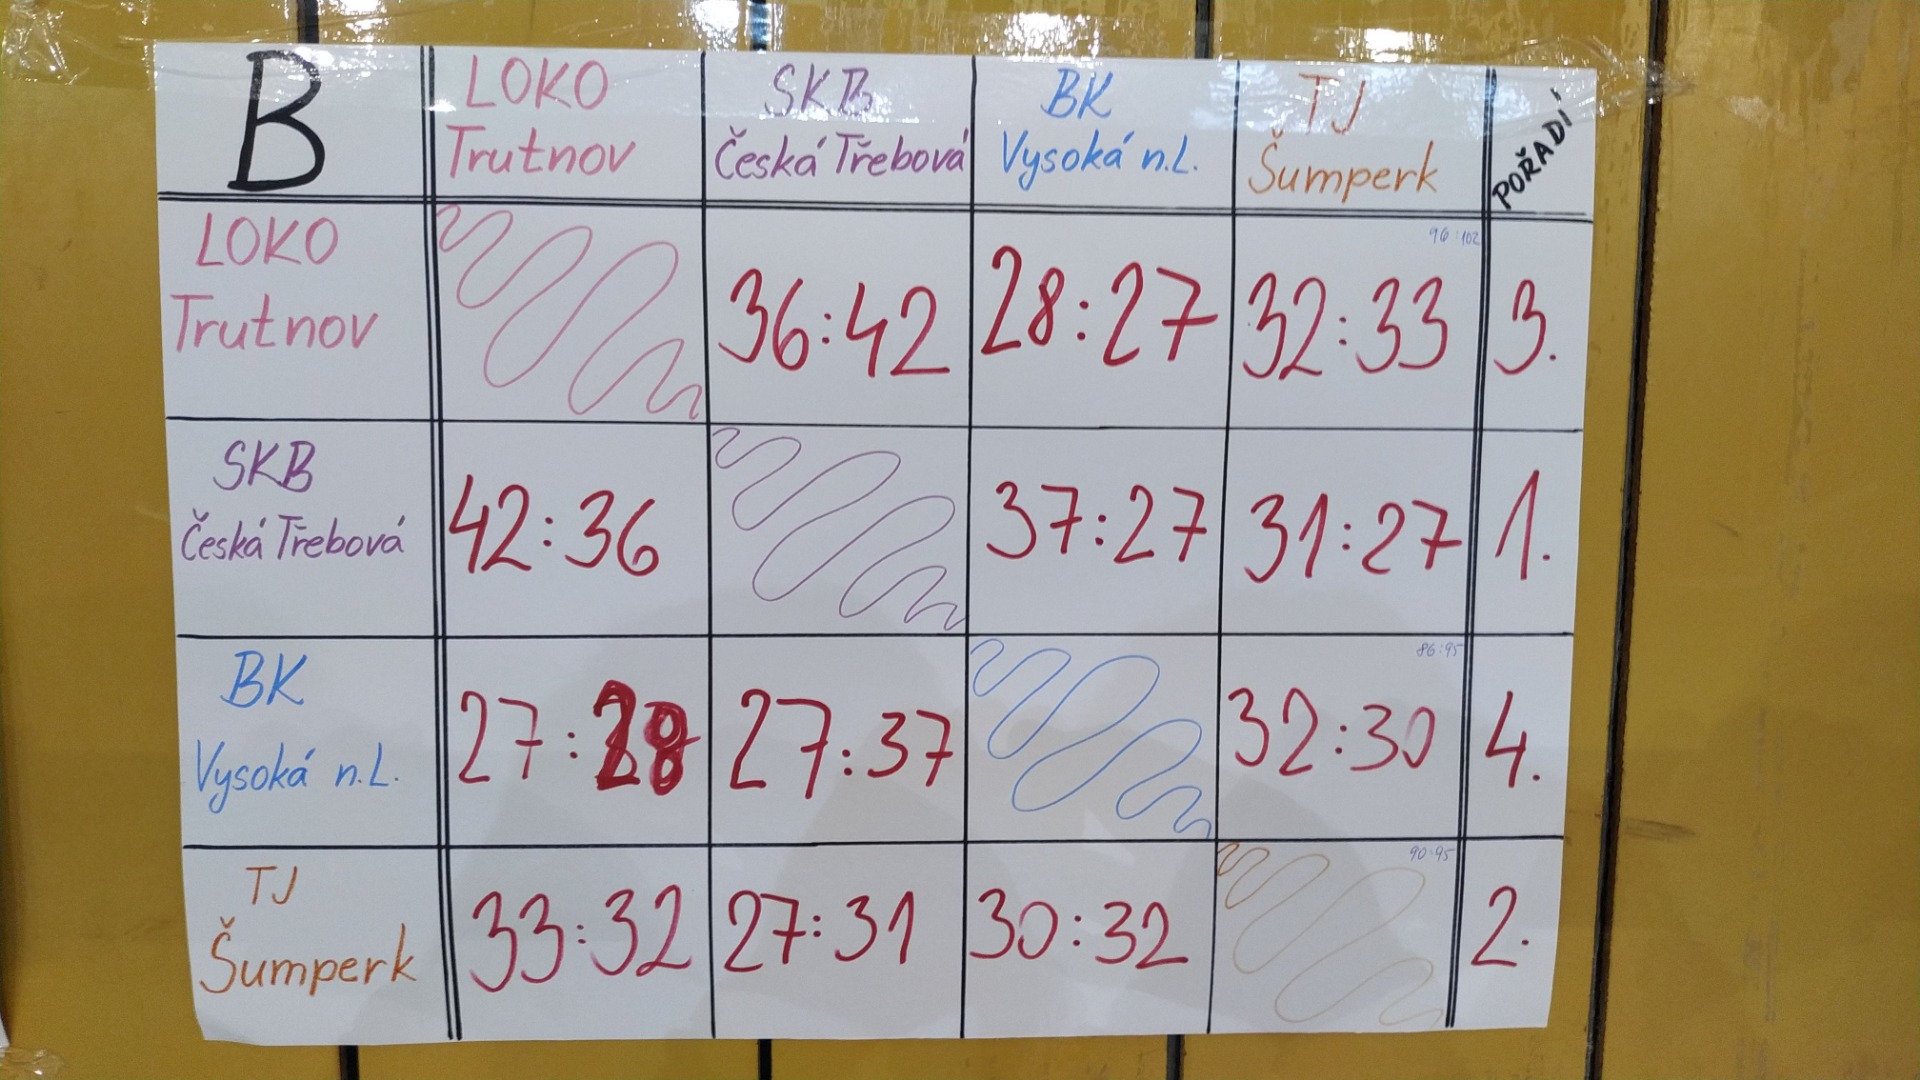 B
LOKO
Trutnov
SKB
Česká Třebová
BK
Vysoká n.L.
TJ
Šumperk
POŘADÍ
LOKO
Trutnov
36:42
28:27
32:33
96:102
3.
SKB
Česká Třebová
42:36
37:27
31:27
1.
BK
Vysoká n.L.
27:28
27:37
32:30
86:95
4.
TJ
Šumperk
33:32
27:31
30:32
90:95
2.